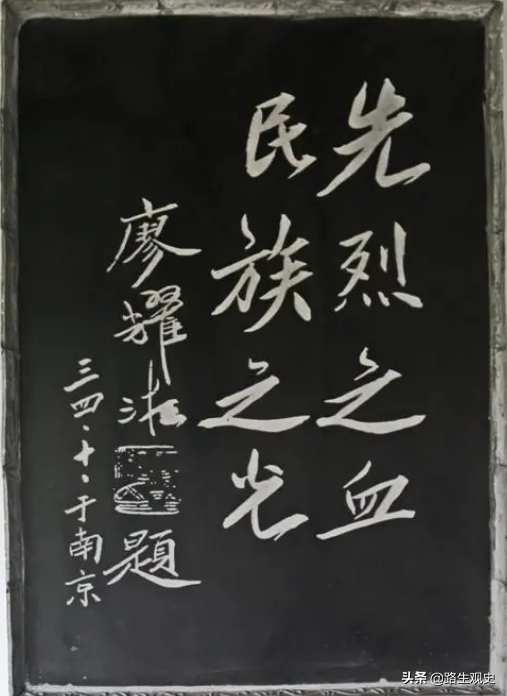 先烈之血
民族之光
廖耀湘题
三四、十、于南京
头条 @路生观史